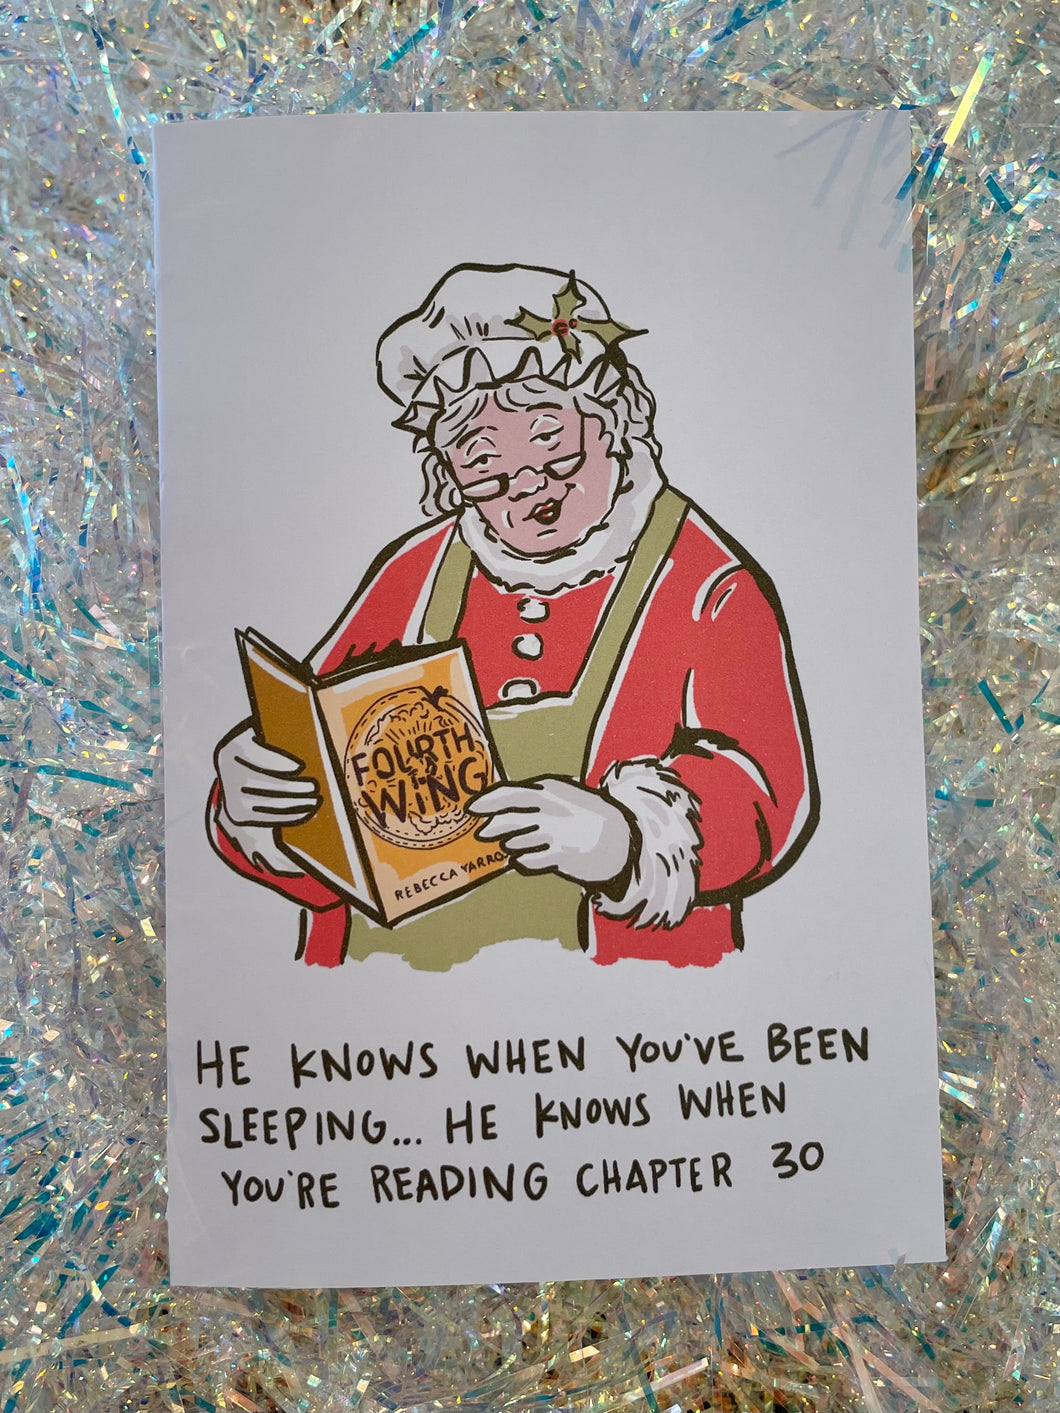 FOURTH
WING
REBECCA YARRO
HE KNOWS WHEN YOU'VE BEEN
SLEEPING... HE KNOWS WHEN
YOU'RE READING CHAPTER 30